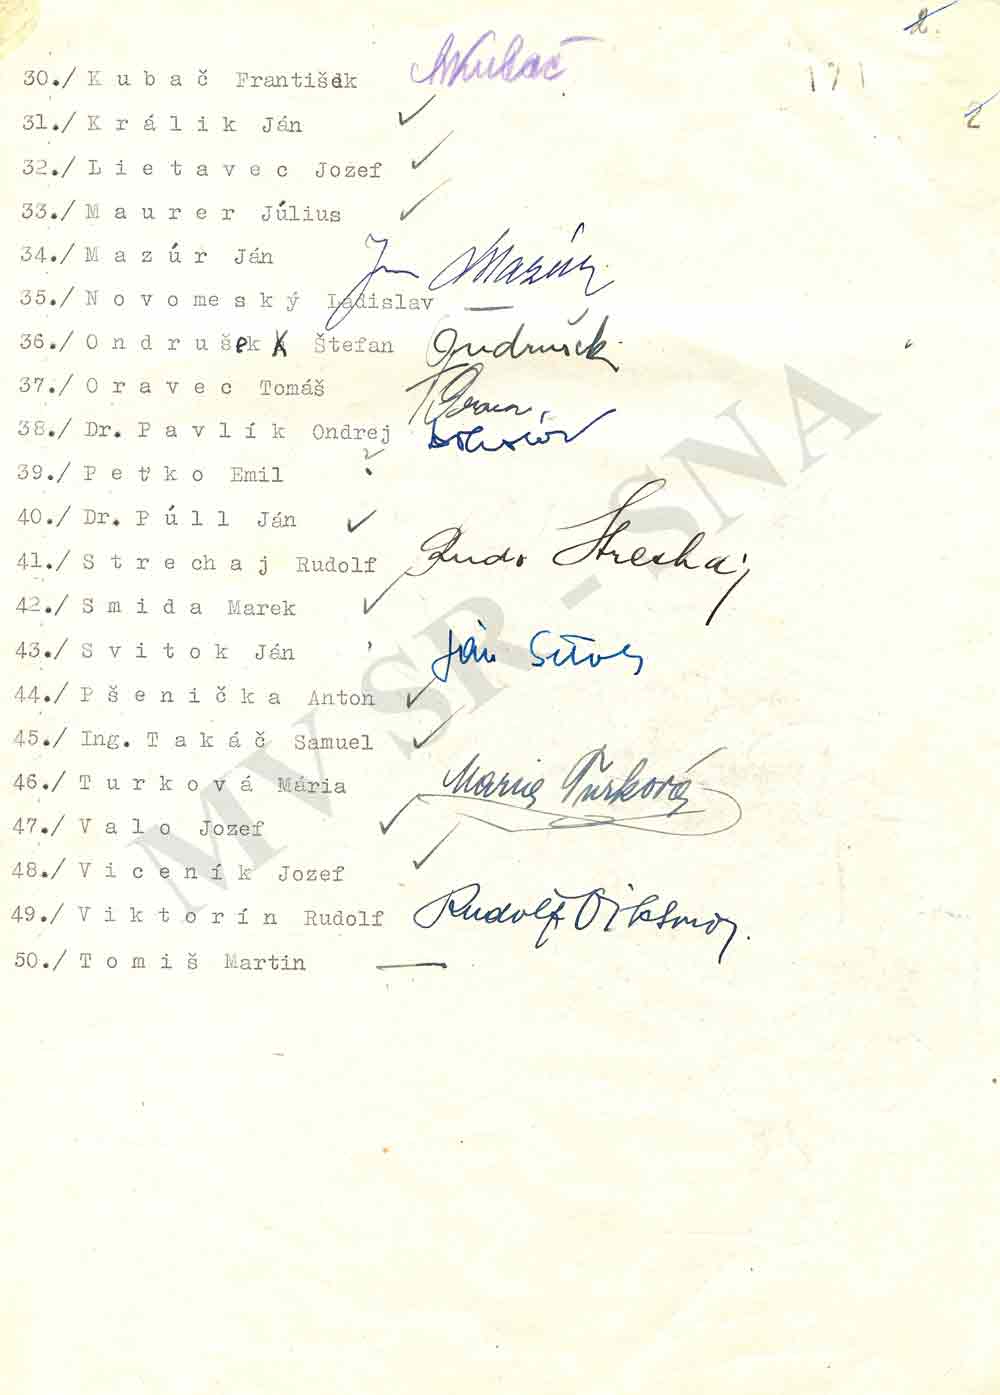 2.
171
2
30./ K u b a č František Kubač
31./ K r á l i k Ján ✓
32./ L i e t a v e c Jozef ✓
33./ M a u r e r Július ✓
34./ M a z ú r Ján Ján Mazúr
35./ N o v o m e s k ý Ladislav —
36./ O n d r u š e k Štefan Ondrušek
37./ O r a v e c Tomáš
38./ Dr. P a v l í k Ondrej
39./ P e ť k o Emil
40./ Dr. P ú l l Ján ✓
41./ S t r e c h a j Rudolf Rudo Strechaj
42./ S m i d a Marek ✓
43./ S v i t o k Ján Ján
44./ P š e n i č k a Anton ✓
45./ Ing. T a k á č Samuel ✓
46./ T u r k o v á Mária Maria Turková
47./ V a l o Jozef ✓
48./ V i c e n í k Jozef ✓
49./ V i k t o r í n Rudolf Rudolf Viktorin
50./ T o m i š Martin —
MV SR - SNA